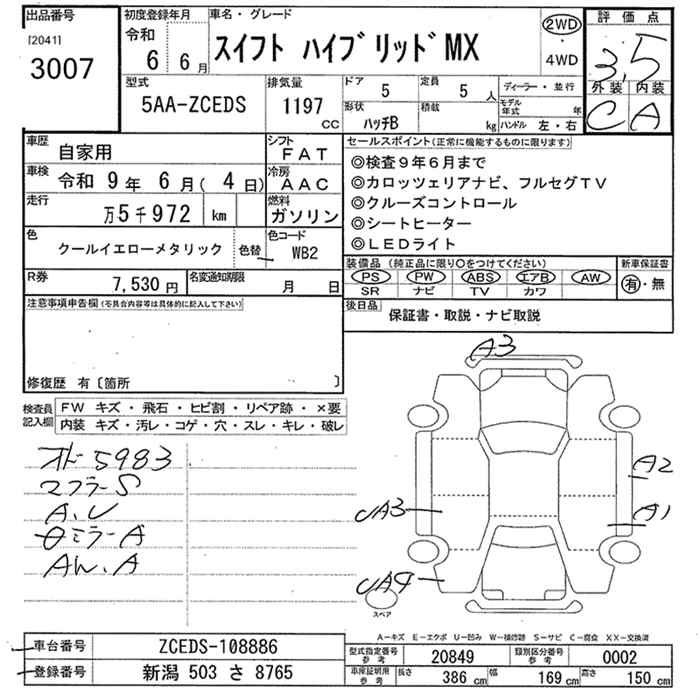 出品番号
[2041]
3007
初度登録年月
令和
6 6月
車名・グレード
スイフト ハイブリッド MX
2WD
・
4WD
評価点
3.5
外装 内装
C A
型式
5AA-ZCEDS
排気量
1197
cc
ドア
5
定員
5 人
形状
ハッチB
積載
kg
ディーラー・並行
モデル年式 年
ハンドル 左・右
車歴
自家用
シフト
FAT
車検
令和 9年 6月( 4日)
冷房
AAC
走行
万5千972 km
燃料
ガソリン
色
クールイエローメタリック
色替
色コード
WB2
R券
7,530円
名変通知期限
月 日
セールスポイント(正常に機能するものに限ります)
◎検査9年6月まで
◎カロッツェリアナビ、フルセグTV
◎クルーズコントロール
◎シートヒーター
◎LEDライト
装備品(純正品に限り○をつけてください)
PS PW ABS エアB AW
SR ナビ TV カワ
新車保証書
有・無
後日品
保証書・取説・ナビ取説
注意事項申告欄(不具合内容等は具体的に記入して下さい)
修復歴 有〔箇所 〕
検査員記入欄
FW キズ・飛石・ヒビ割・リペア跡・×要
内装 キズ・汚レ・コゲ・穴・スレ・キレ・破レ
オド5983
マフラーS
A.U
ミラーA
AW.A
A3
A2
A1
UA3
UA4
スペア
A-キズ E-エクボ U-凹み W-補修跡 S-サビ C-腐食 XX-交換済
車台番号
ZCEDS-108886
登録番号
新潟 503 さ 8765
型式指定番号
参考
20849
類別区分番号
参考
0002
車庫証明用
参考
長さ
386 cm
幅
169 cm
高さ
150 cm